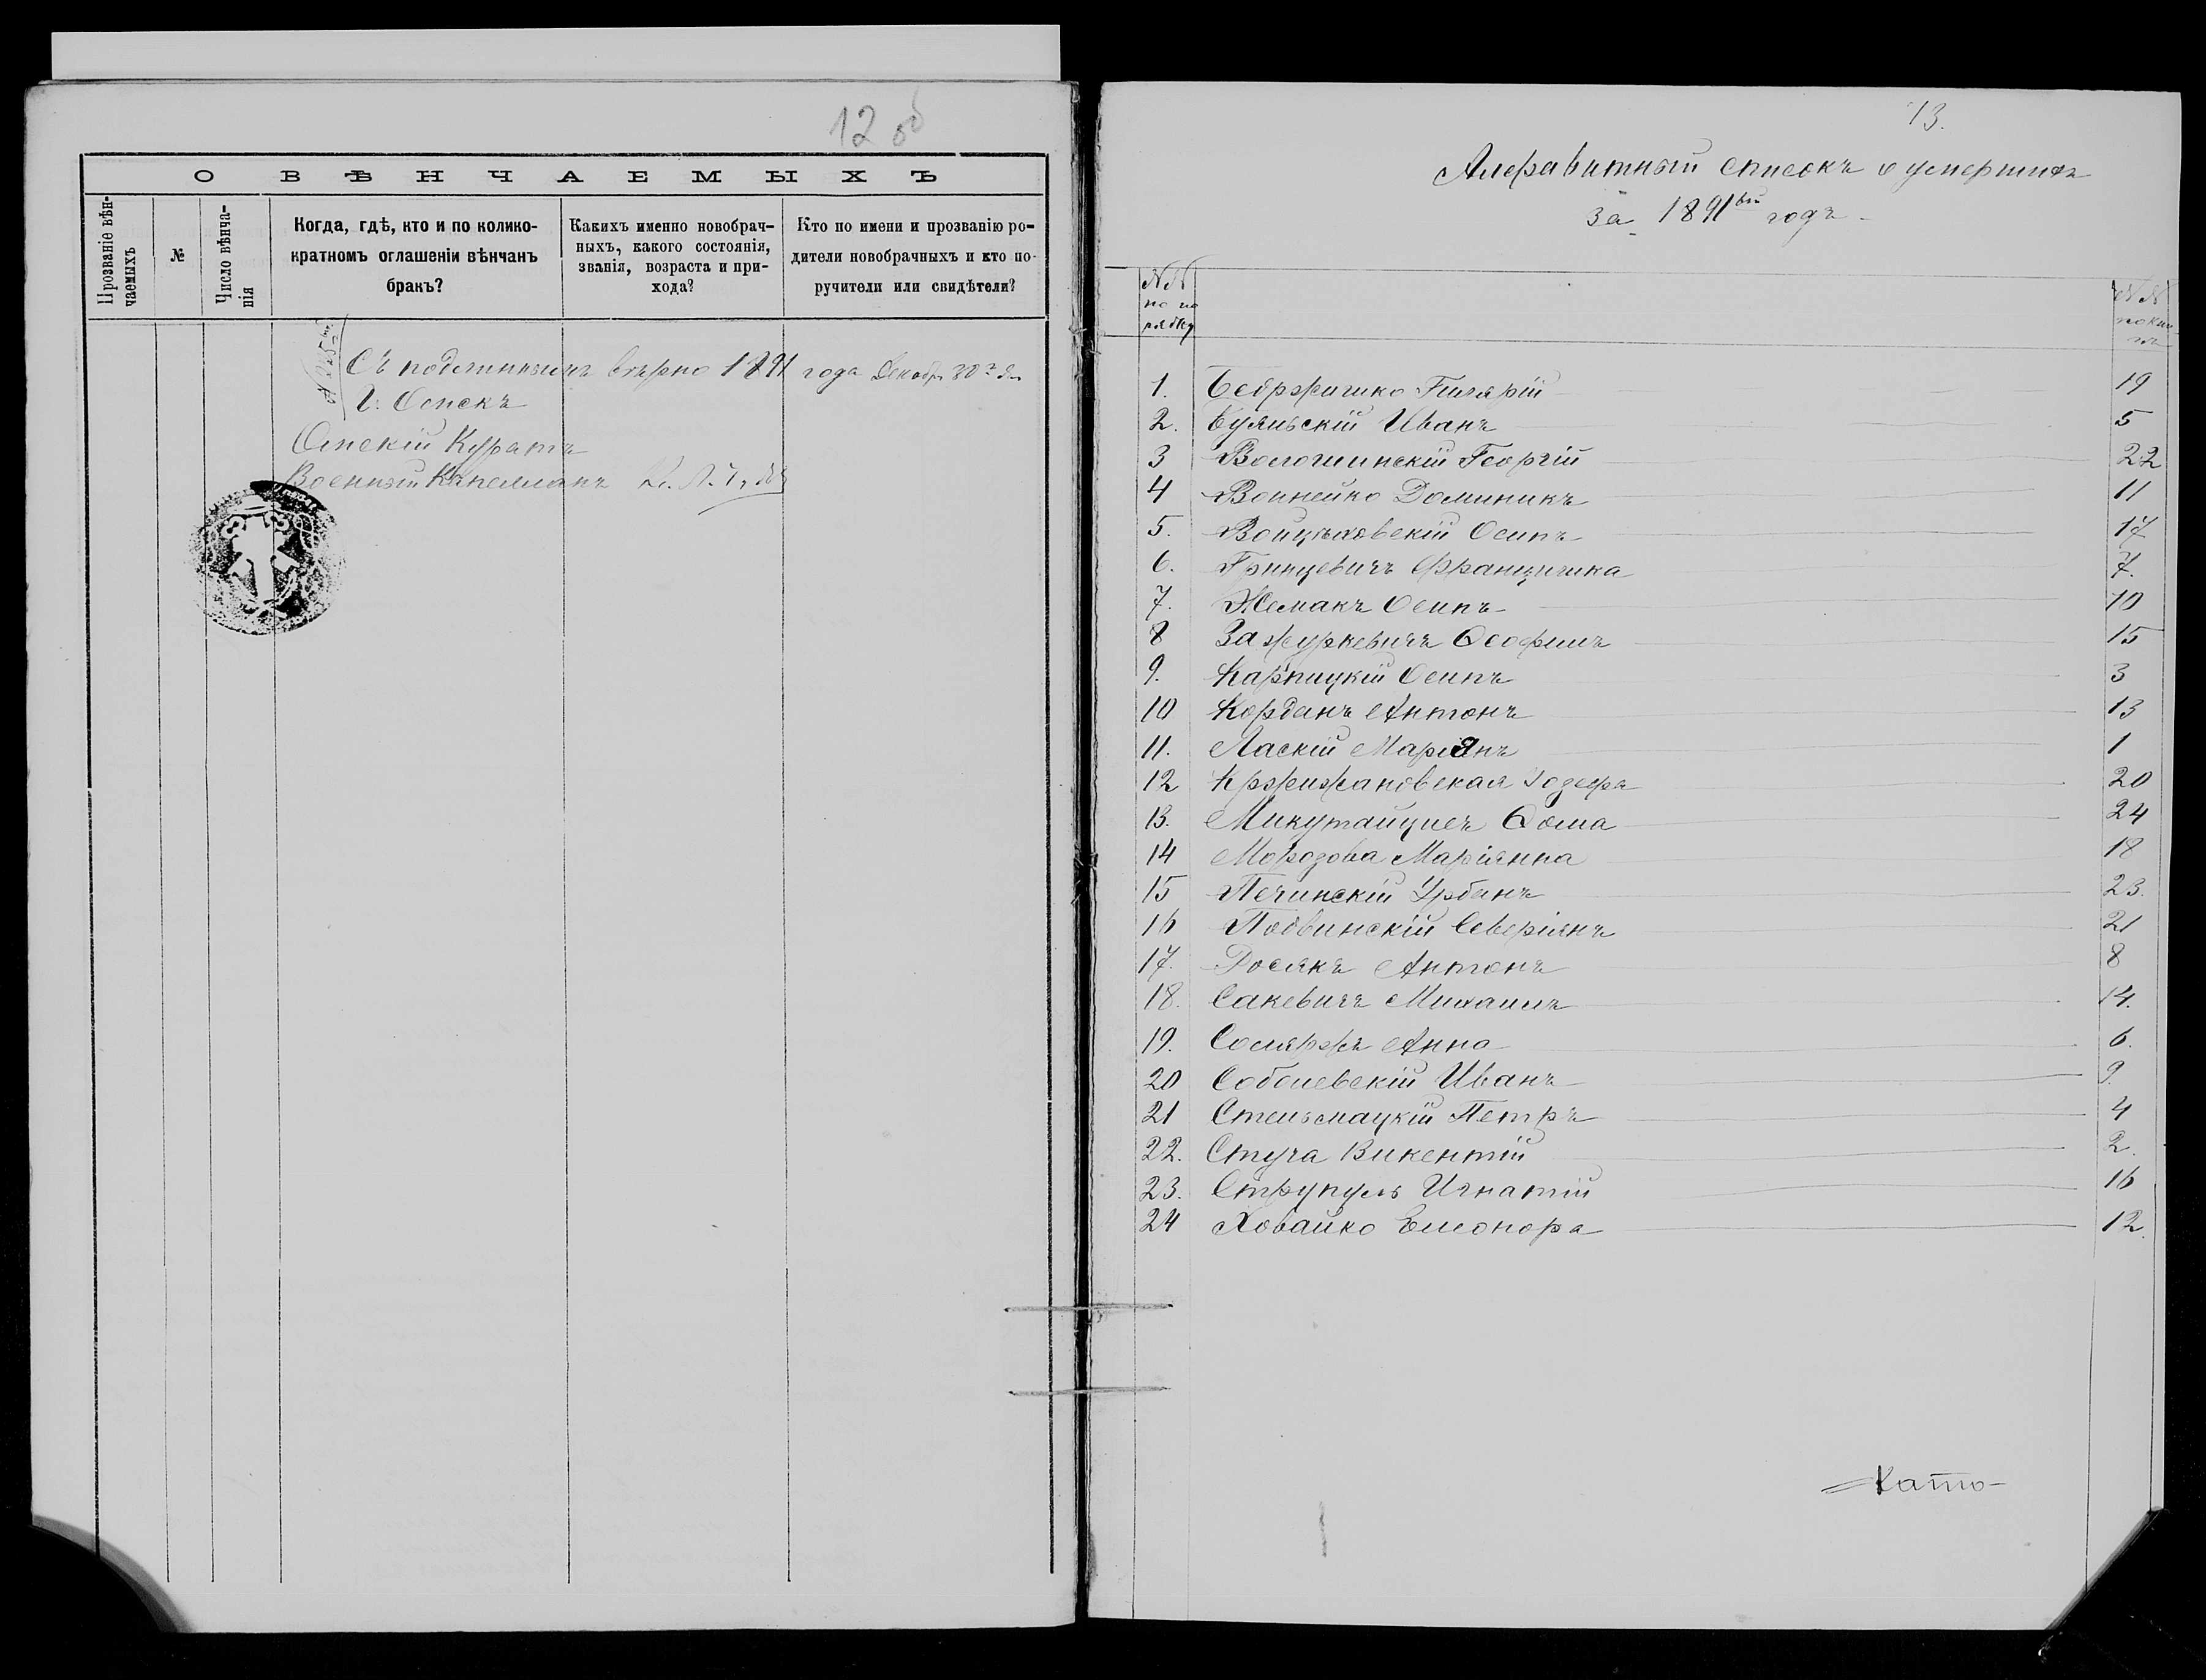 12 об
О ВѢНЧАЕМЫХЪ
Прозваніе вѣн-
чаемыхъ
№
Число вѣнча-
нія
Когда, гдѣ, кто и по колико-
кратномъ оглашеніи вѣнчанъ
бракъ?
Какихъ именно новобрач-
ныхъ, какого состоянія,
званія, возраста и при-
хода?
Кто по имени и прозванію ро-
дители новобрачныхъ и кто по-
ручители или свидѣтели?
Съ подлиннымъ вѣрно 1891 года Декабр 30 дн
Г. Омскъ
Омскій Куратъ
Военный Капелланъ
13.
Алфавитный списокъ о умершихъ
за 1891 годъ
№№
по по
рядку
№№
по кни
гѣ
1. Бедржишко Гиляріи 19
2. Буяльскій Иванъ 5
3 Вологинскій Георгій 22
4 Воинейко Доминикъ 11
5. Войцѣховскій Осипъ 17
6. Гринцевичъ Францишка 7.
7. Жемакъ Осипъ 10
8 Зажуркевичъ Ѳеофилъ 15
9. Карпицкій Осипъ 3
10 Корданъ Антонъ 13
11. Ласкій Маріанъ 1
12 Кржижановская Іозефа 20
13. Микутайцисъ Ѳома 24
14 Морозова Маріянна 18
15 Печинскій Урбанъ 23.
16 Подвинскій Северіянъ 21
17. Росякъ Антонъ 8
18. Сакевичъ Михаилъ 14.
19. Соляржъ Анна 6.
20 Соболевскій Иванъ 9.
21 Стельмацкій Петръ 4
22. Стуча Викентій 2.
23. Струпуль Игнатій 16
24 Ховайко Елеонора 12.